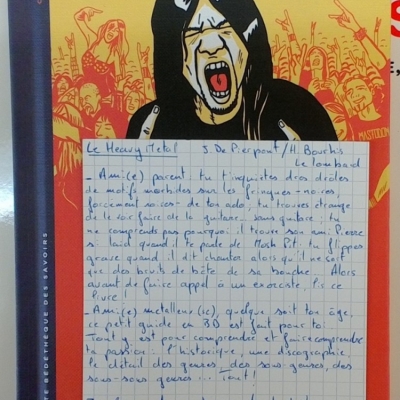 MASTODON
Le Heavy Metal J. De Pierpont / H. Bourhis
Le Lombard
- Ami(e) parent, tu t'inquiètes des drôles
de motifs morbides sur les fringues - noires,
forcément noires - de ton ado, tu trouves étrange
de le voir faire de la guitare... sans guitare ; tu
ne comprends pas pourquoi il trouve son ami Pierre
si laid quand il te parle de Mosh Pit ; tu flippes
grave quand il dit chanter alors qu'il ne sort
que des bruits de bête de sa bouche... Alors
avant de faire appel à un exorciste, lis ce
livre !
- Ami(e) metalleux(se), quelque soit ton âge,
ce petit guide en BD est fait pour toi.
Tout y est pour comprendre et faire comprendre
ta passion : l'historique, une discographie,
le détail des genres, des sous-genres, des
sous-sous genres ... Tout !
TE BÉDÉTHÈQUE DES SAVOIRS